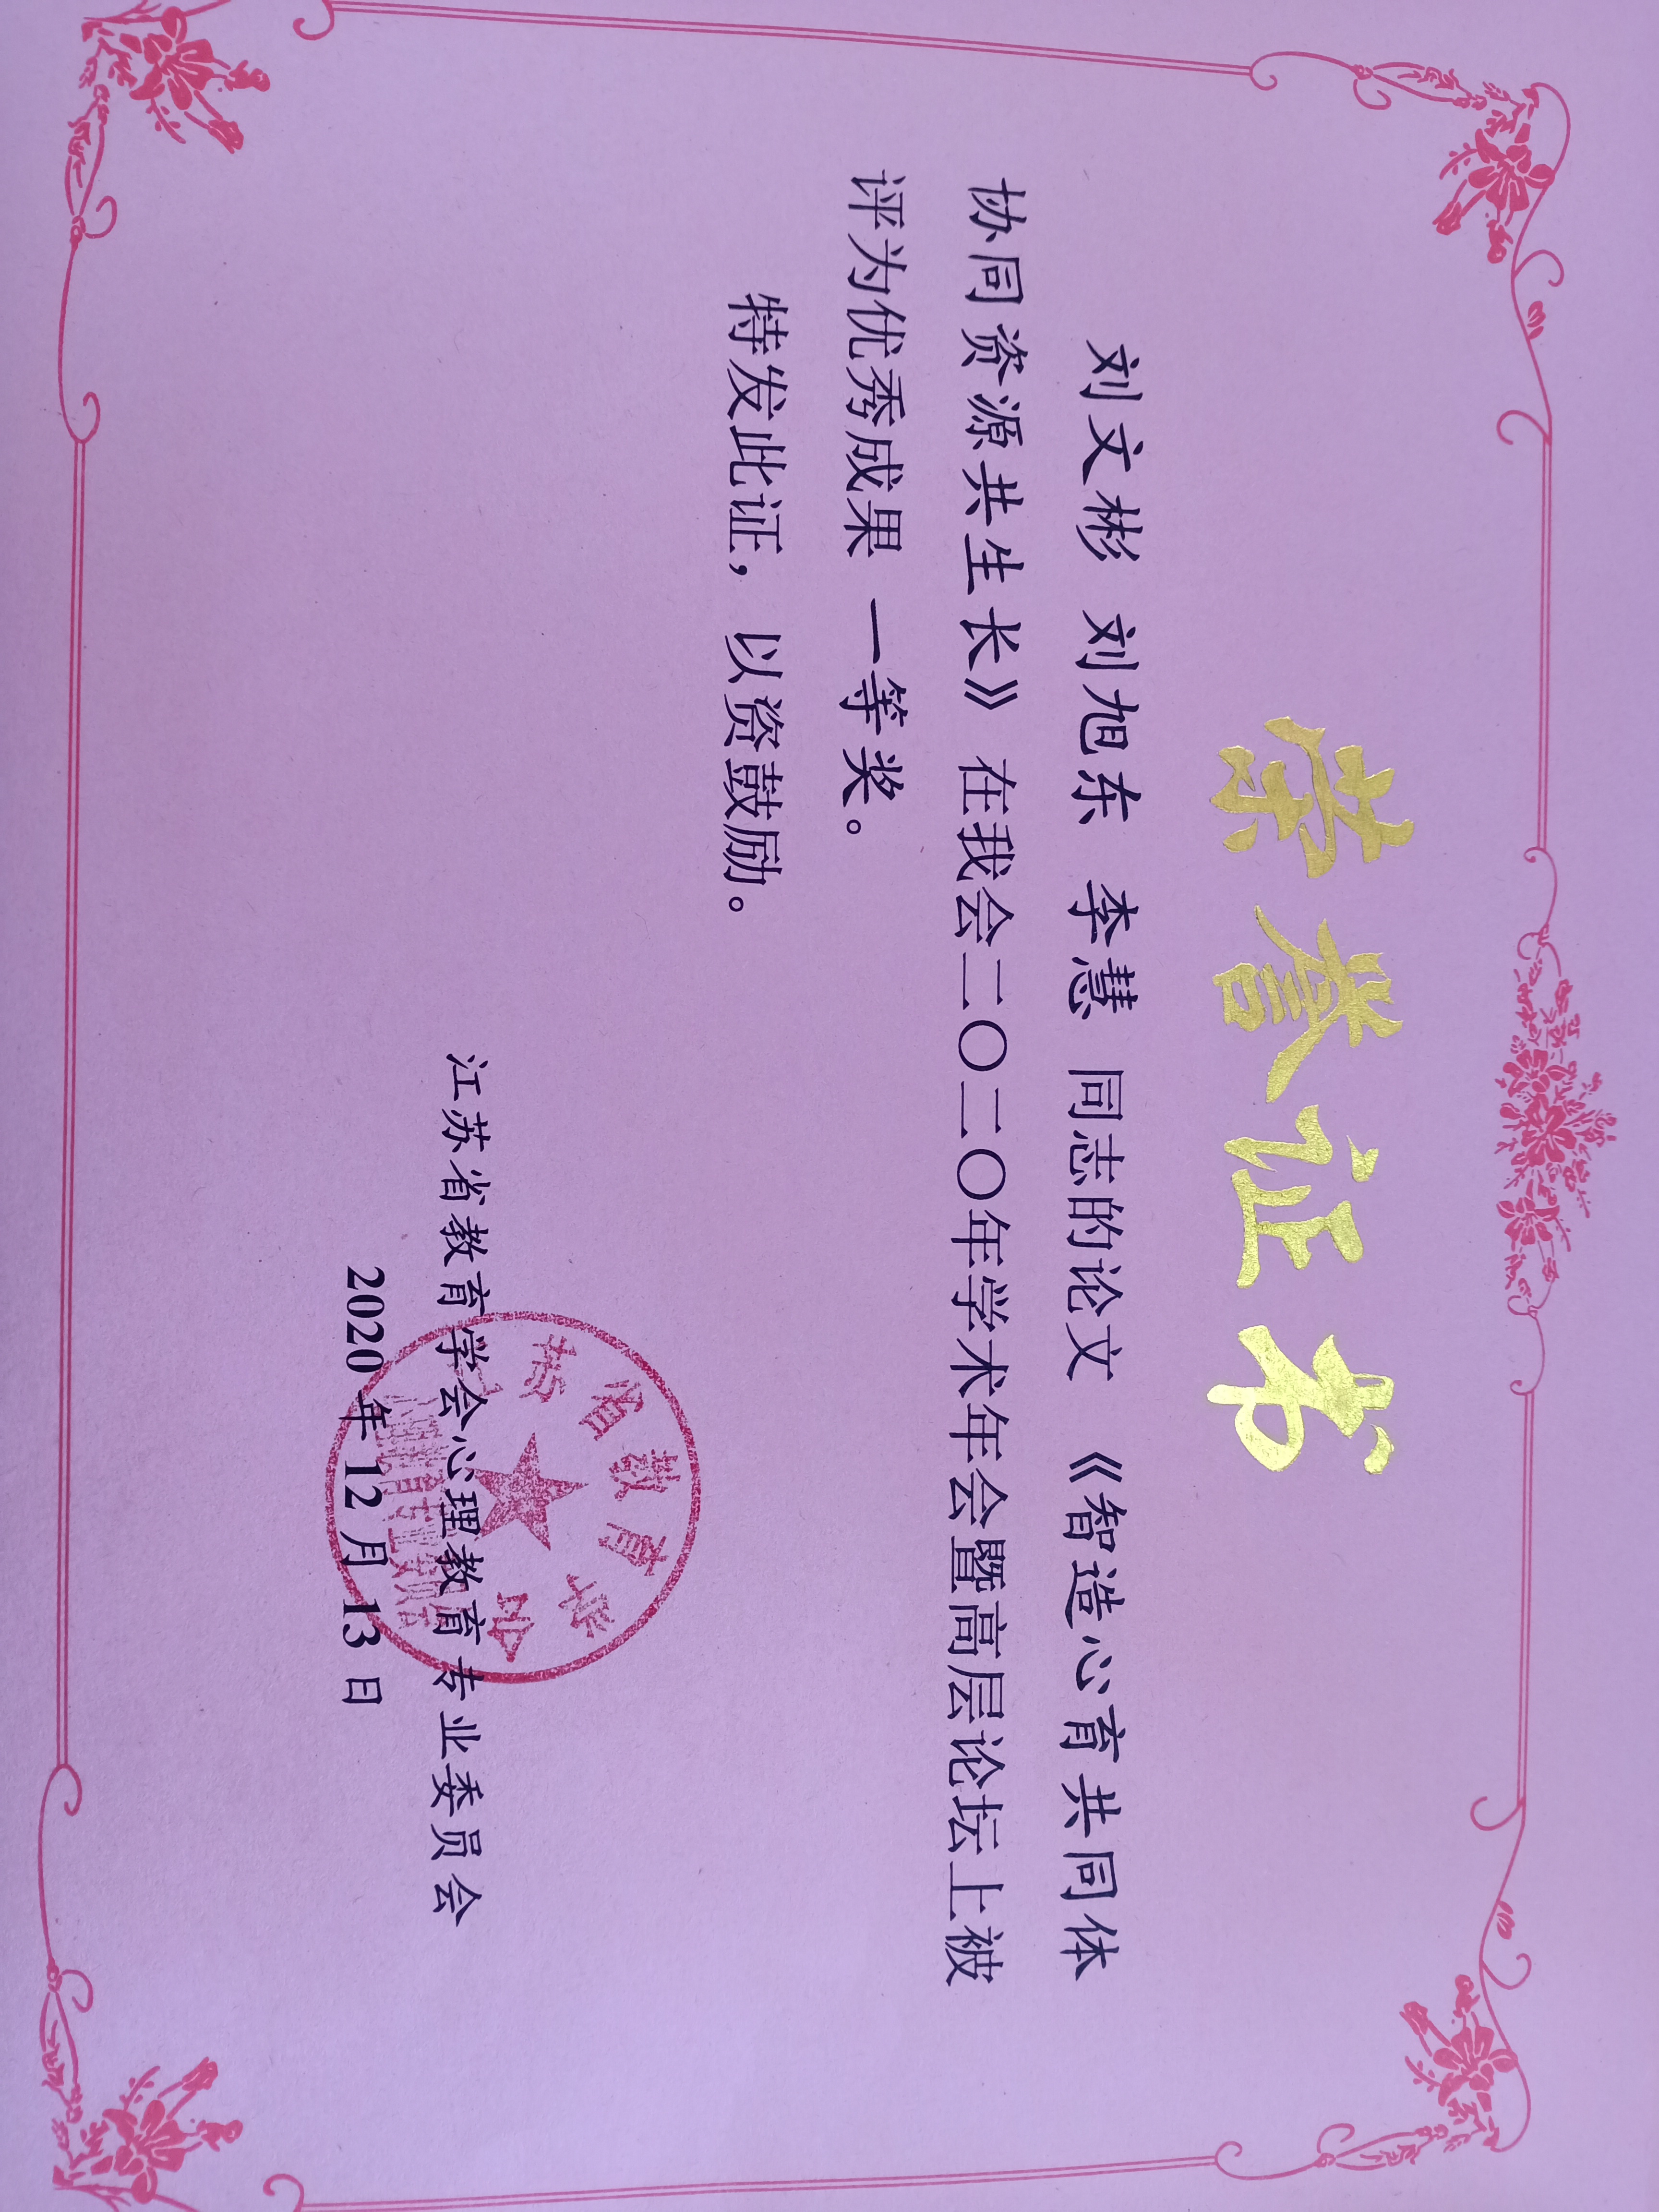 荣誉证书
刘文彬 刘旭东 李慧 同志的论文 《智造心育共同体
协同资源共生长》 在我会二〇二〇年学术年会暨高层论坛上被
评为优秀成果 一等奖。
特发此证，以资鼓励。
江苏省教育学会心理教育专业委员会
2020 年 12 月 13 日
苏省教育学会